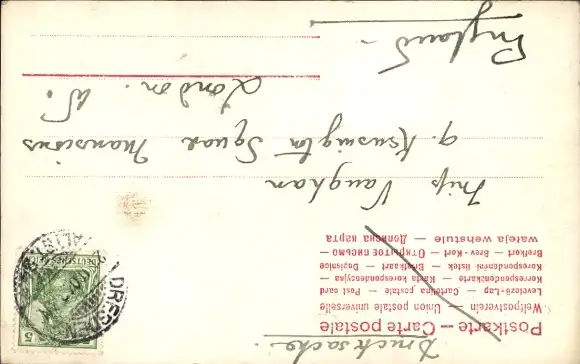 Drucksache.
Postkarte — Carte postale
Weltpostverein — Union postale universelle
Levelező-Lap — Cartolina postale — Post card
Korrespondenzkarte — Karta korespondencyjna
Korespondenční listek — Briefkaart — Dopisnice
Brefkort — Brev-Kort — Открытое письмо —
Miss Vaughan
9. Kensington Square Mansions
London. W.
England —
DRESDEN
DEUTSCHES REICH
5